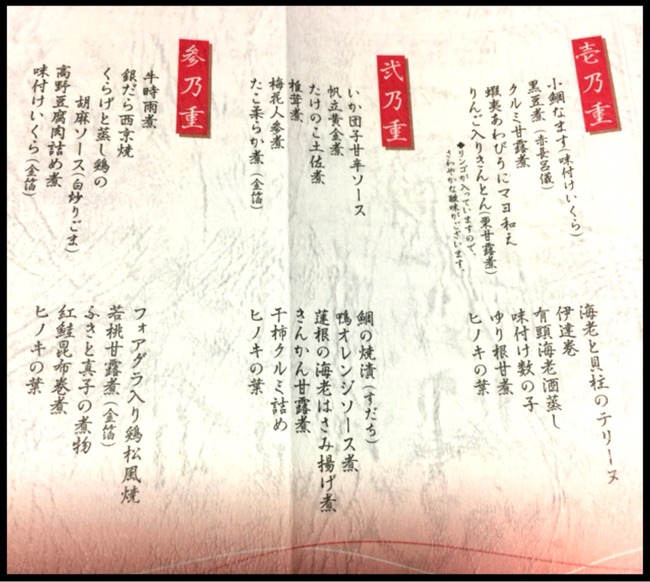 壱乃重
小鯛なます(味付けいくら)
黒豆煮(赤長呂儀)
クルミ甘露煮
蝦夷あわびうにマヨ和え
りんご入りきんとん(栗甘露煮)
◆リンゴが入っていますので、
さわやかな酸味がございます。
海老と貝柱のテリーヌ
伊達巻
有頭海老酒蒸し
味付け数の子
ゆり根甘煮
ヒノキの葉
弐乃重
いか団子甘辛ソース
帆立黄金煮
たけのこ土佐煮
椎茸煮
梅花人参煮
たこ柔らか煮(金箔)
鯛の焼漬(すだち)
鴨オレンジソース煮
蓮根の海老はさみ揚げ煮
きんかん甘露煮
干柿クルミ詰め
ヒノキの葉
参乃重
牛時雨煮
銀だら西京焼
くらげと蒸し鶏の
胡麻ソース(白炒りごま)
高野豆腐肉詰め煮
味付けいくら(金箔)
フォアグラ入り鶏松風焼
若桃甘露煮(金箔)
ふきと真子の煮物
紅鮭昆布巻煮
ヒノキの葉